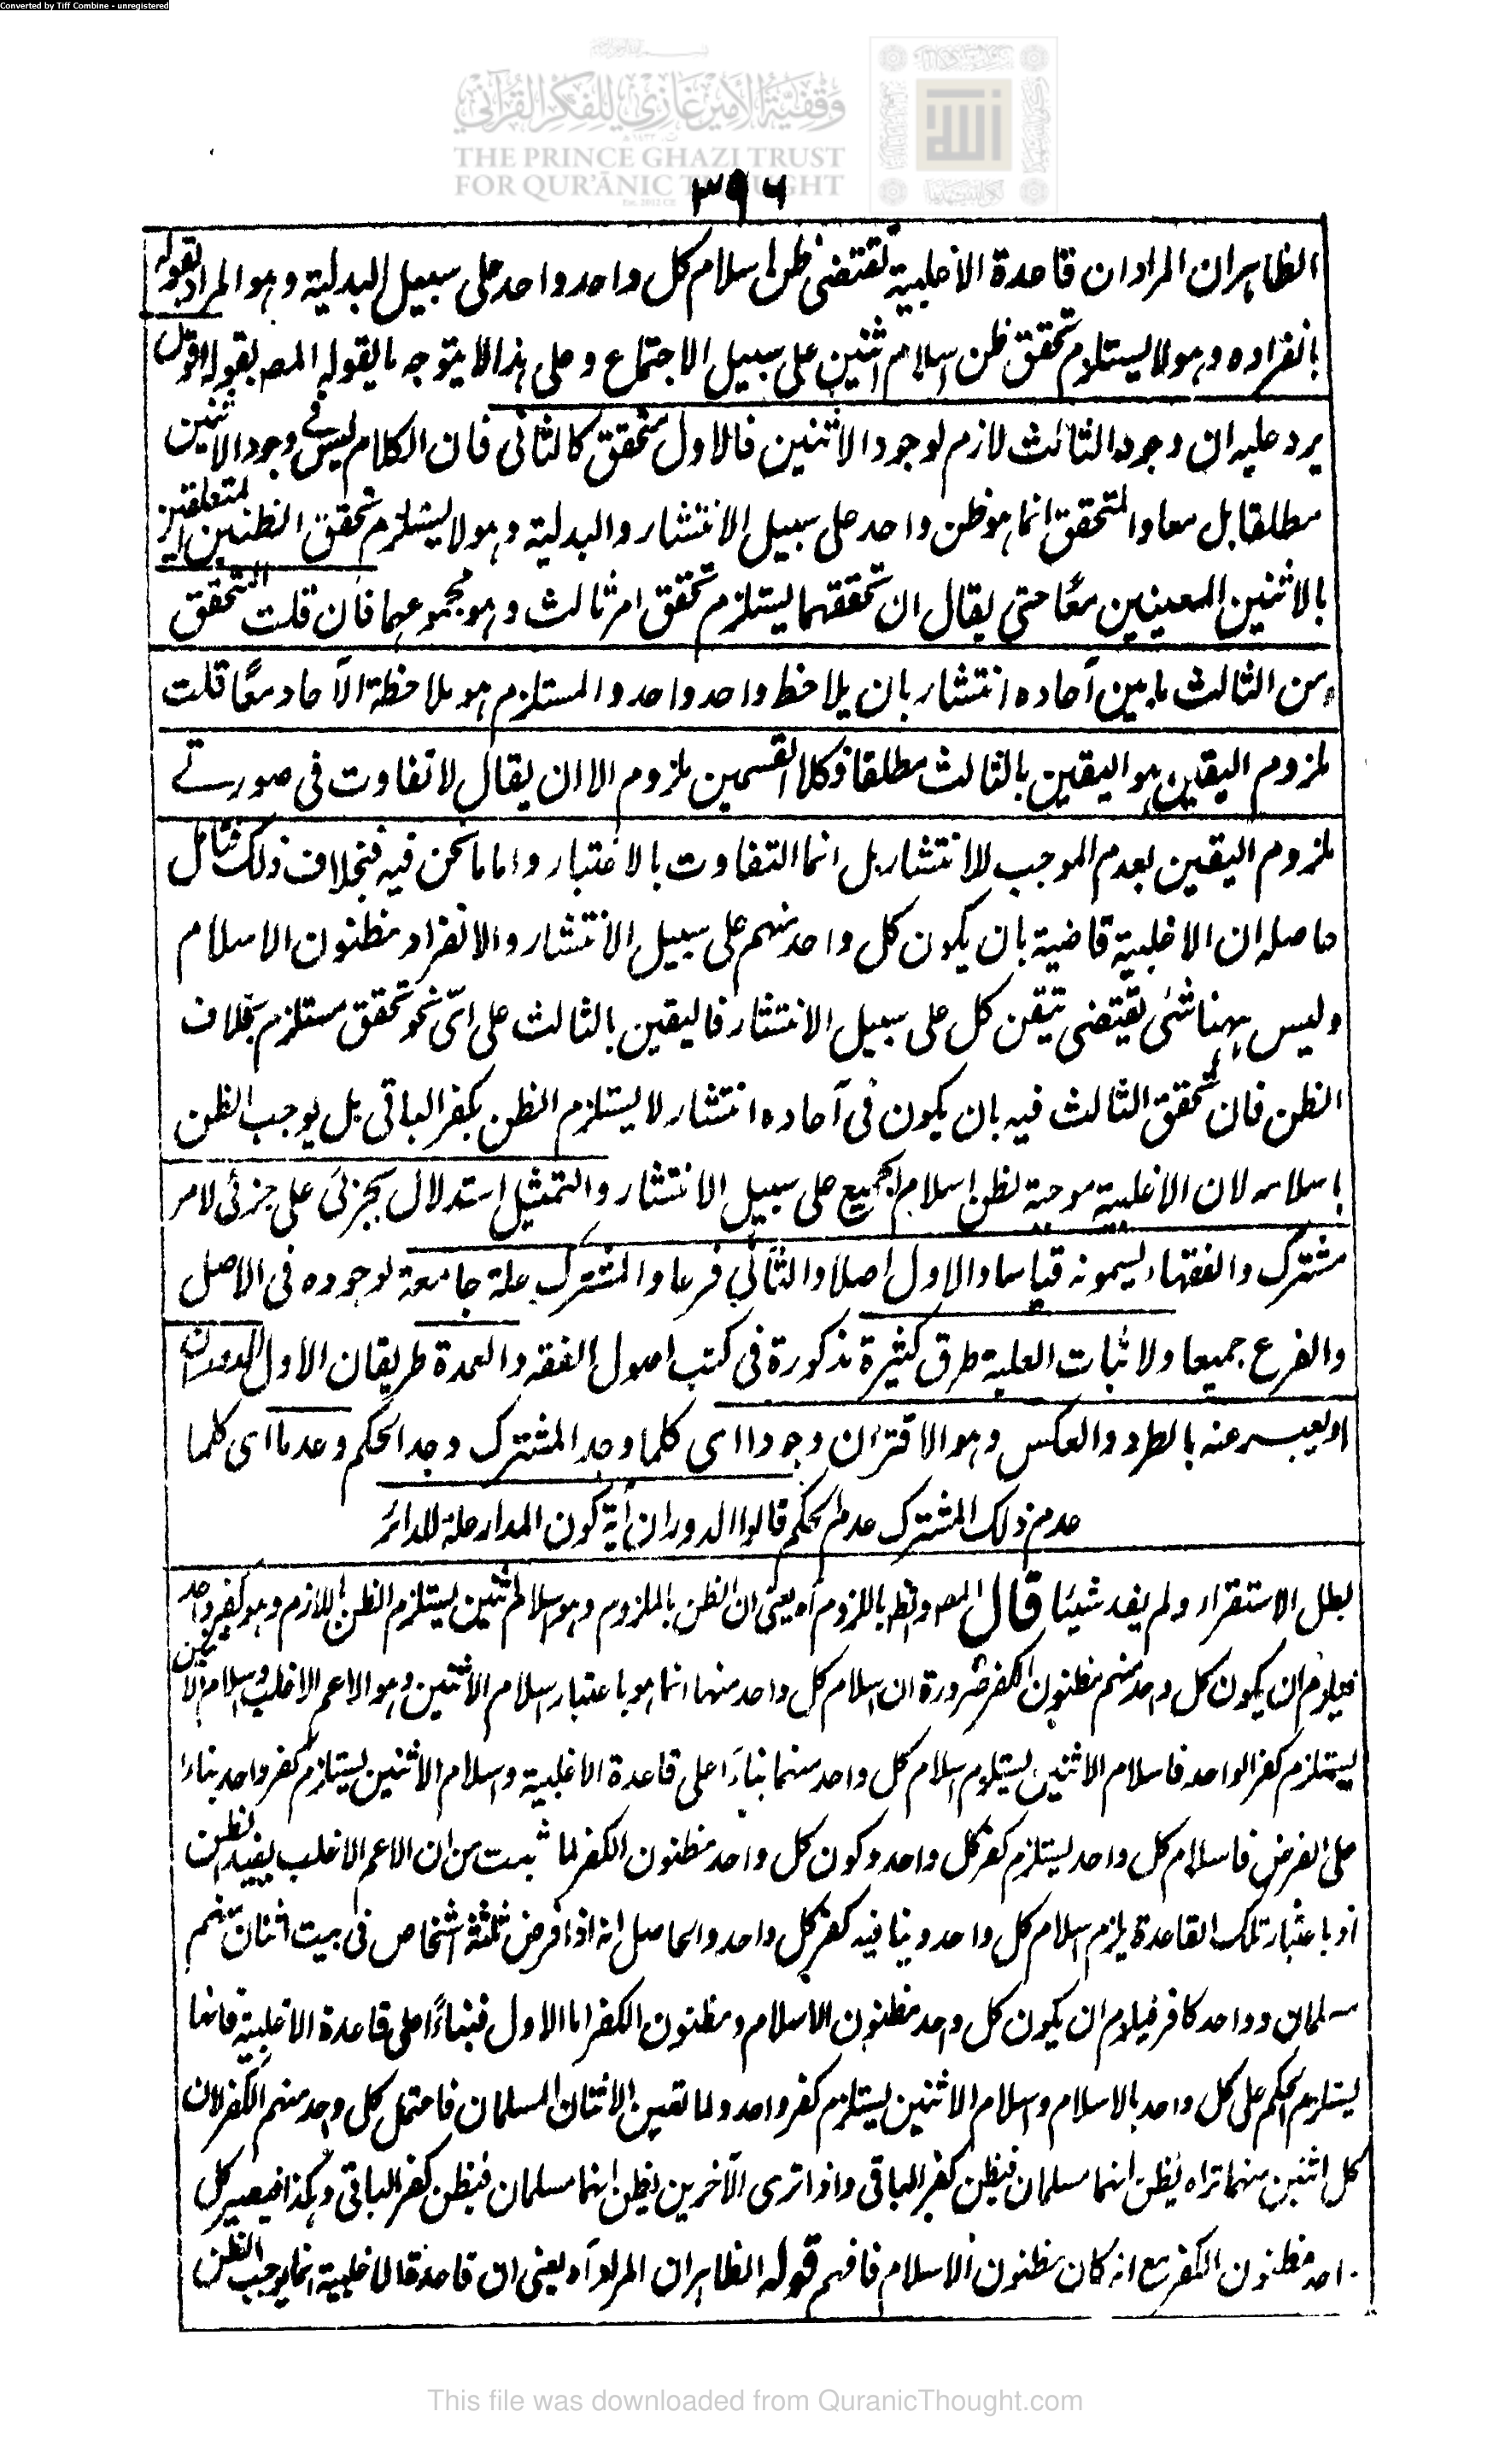 Converted by Tiff Combine - unregistered
وقفية الأمير غازي للفكر القرآني
THE PRINCE GHAZI TRUST
FOR QUR'ĀNIC THOUGHT
٣٩٦
الظاهر ان المراد ان قاعدة الاغلبية تقتضى ظن اسلام كل واحد واحد على سبيل البدلية وهو المراد بقوله
بانفراده وهو لا يستلزم تحقق ظن اسلام اثنين على سبيل الاجتماع وعلى هذا لا يتوجه ما يقوله المصـ بقوله اقول
يرد عليه ان وجود الثالث لازم لوجود الاثنين فالاول متحقق كالثانى فان الكلام ليس فے وجود الاثنين
مطلقا بل معا والمتحقق انما هو ظن واحد على سبيل الانتشار والبدلية وهو لا يستلزم تحقق الظنين المتعلقين
بالاثنين المعينين معًا حتى يقال ان تحققهما يستلزم تحقق امر ثالث وهو مجموعهما فان قلت التحقق
من الثالث ما بين آحاده انتشار بان يلاحظ واحد واحد والمستلزم هو ملاحظة الآحاد معًا قلت
ملزوم اليقين هو اليقين بالثالث مطلقا فكلا القسمين ملزوم الا ان يقال لا تفاوت فى صورتے
ملزوم اليقين بعدم الموجب للانتشار بل انما التفاوت بالاعتبار واما ما نحن فيه فبخلاف ذلك فتامل
حاصله ان الاغلبية قاضية بان يكون كل واحد منهم على سبيل الانتشار والانفراد مظنون الاسلام
وليس ههنا شئ يقتضى تيقن كل على سبيل الانتشار فاليقين بالثالث على اىّ نحو تحقق مستلزم بخلاف
الظن فان تحقق الثالث فيه بان يكون فى آحاده انتشار لا يستلزم الظن بكفر الباقى بل يوجب الظن
باسلامه لان الاغلبية موجبة لظن اسلام الجميع على سبيل الانتشار والتمثيل استدلال بجزئى على جزئى لامر
مشترك والفقهاء يسمونه قياسا والاول اصلا والثانى فرعا والمشترك علة جامعة لوجوده فى الاصل
والفرع جميعا ولاثبات العلية طرق كثيرة مذكورة فى كتب اصول الفقه والعمدة طريقان الاول الدوران
او يعبر عنه بالطرد والعكس وهو الاقتران وجودا اى كلما وجد المشترك وجد الحكم وعدما اى كلما
عدم ذلك المشترك عدم الحكم قالوا الدوران آية كون المدار علة للدائر
بطل الاستقراء ولم يفد شيئا قال المصـ والظن باللزوم آه يعنى ان الظن بالملزوم وهو اسلام اثنين يستلزم الظن باللازم وهو كفر واحد
فيلزم ان يكون كل واحد منهم مظنون الكفر ضرورة ان اسلام كل واحد منها انما هو باعتبار اسلام الاثنين وهو الاعم الاغلب واسلام الاثنين
يستلزم كفر الواحد فاسلام الاثنين يستلزم اسلام كل واحد منهما بناءً على قاعدة الاغلبية واسلام الاثنين يستلزم كفر واحد بناءً
على الفرض فاسلام كل واحد يستلزم كفر كل واحد وكون كل واحد مظنون الكفر لما ثبت من ان الاعم الاغلب يفيد الظن
اذ باعتبار تلك القاعدة يلزم اسلام كل واحد وينافيه كفر كل واحد والحاصل انه اذا فرض ثلثة اشخاص فى بيت اثنان منهم
مسلمان وواحد كافر فيلزم ان يكون كل واحد مظنون الاسلام ومظنون الكفر اما الاول فبناءً على قاعدة الاغلبية فانها
يستلزم الحكم على كل واحد بالاسلام واسلام الاثنين يستلزم كفر واحد ولما تعين الاثنان المسلمان فاحتمل كل واحد منهم الكفر لان
كل اثنين منهما تراه يظن انهما مسلمان فيظن كفر الباقى واذا ترى الآخرين يظن انهما مسلمان فيظن كفر الباقى وهكذا فيصير كل
واحد مظنون الكفر مع انه كان مظنون الاسلام فافهم قوله الظاهر ان المراد آه يعنى ان قاعدة الاغلبية انما يوجب الظن
This file was downloaded from QuranicThought.com